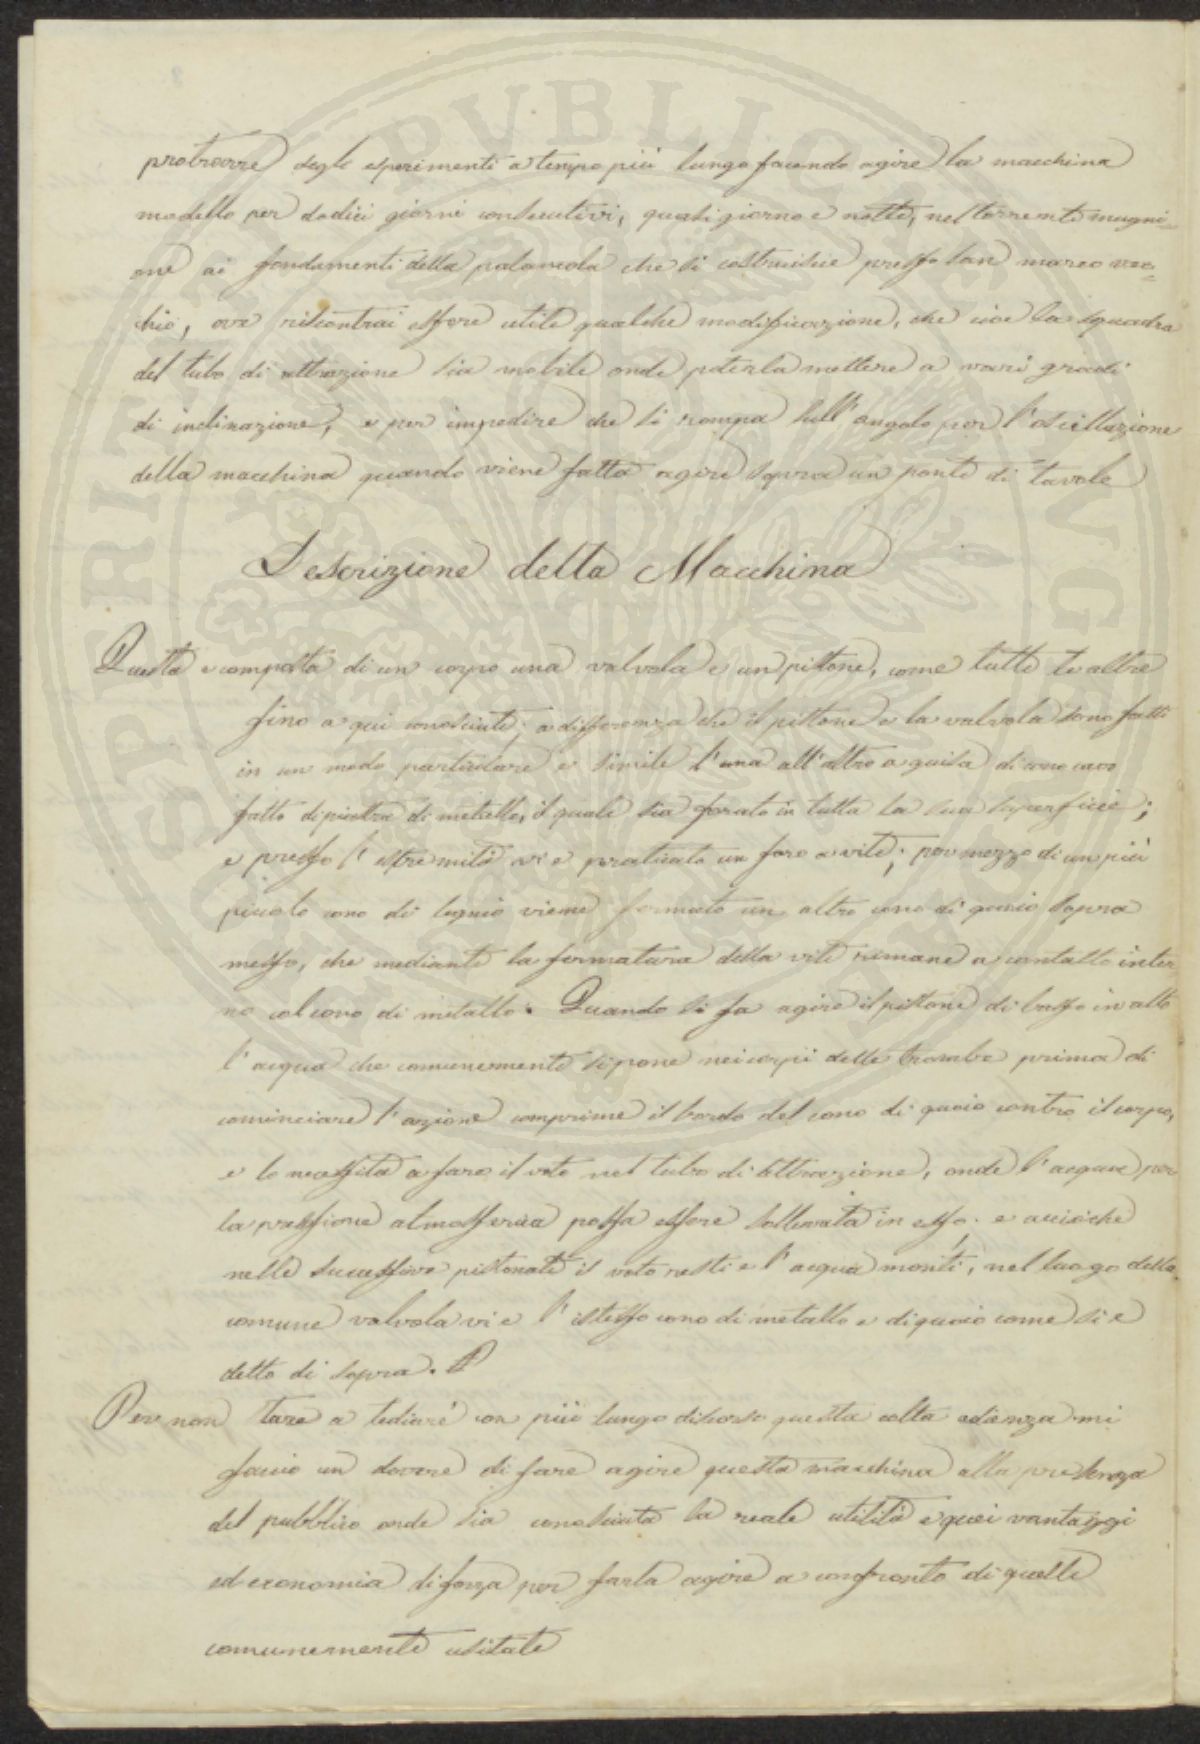 protrarre degli esperimenti a tempo più lungo facendo agire la macchina
modello per dodici giorni consecutivi, quasi giorno e notte, nel torrente mugni=
one ai fondamenti della palancola che si costruisce presso san marco vec=
chio, ove riscontrai essere utile qualche modificazione, che cioe la squadra
del tubo di attrazione sia mobile onde poterla mettere a vari gradi
di inclinazione, e per impedire che si rompa sull'angolo per l'oscillazione
della macchina quando viene fatta agire sopra un ponte di tavole
Descrizione della Macchina
Questa e composta di un corpo una valvola e un pistone, come tutte le altre
fino a qui conosciute; a differenza che il pistone e la valvola sono fatti
in un modo particolare e simile l'una all'altro a guisa di cono cavo
fatto di piastra di metallo, il quale sia forato in tutta la sua superficie;
e presso l'estremità vi e praticato un foro a vite; per mezzo di un più
piccolo cono di legnio viene fermato un altro cono di quoio sopra
messo, che mediante la fermatura della vite rimane a contatto inter
no col cono di metallo. Quando si fa agire il pistone di basso in alto
l'acqua che comunemente si pone nei corpi delle trombe prima di
cominciare l'azione comprime il bordo del cono di quoio contro il corpo,
e lo necessita a fare il voto nel tubo di attrazione, onde l'acqua per
la pressione atmosferica possa essere sollevata in esso; e acciòche
nelle successive pistonate il voto resti e l'acqua monti, nel luogo della
comune valvola vi e l'istesso cono di metallo e di quoio come si e
detto di sopra.
Per non stare a tediare con più lungo discorso questa colta udienza mi
faccio un dovere di fare agire questa macchina alla presenza
del pubblico onde sia conosciuta la reale utilità e quei vantaggi
ed economia di forza per farla agire a confronto di quelle
comunemente usitate